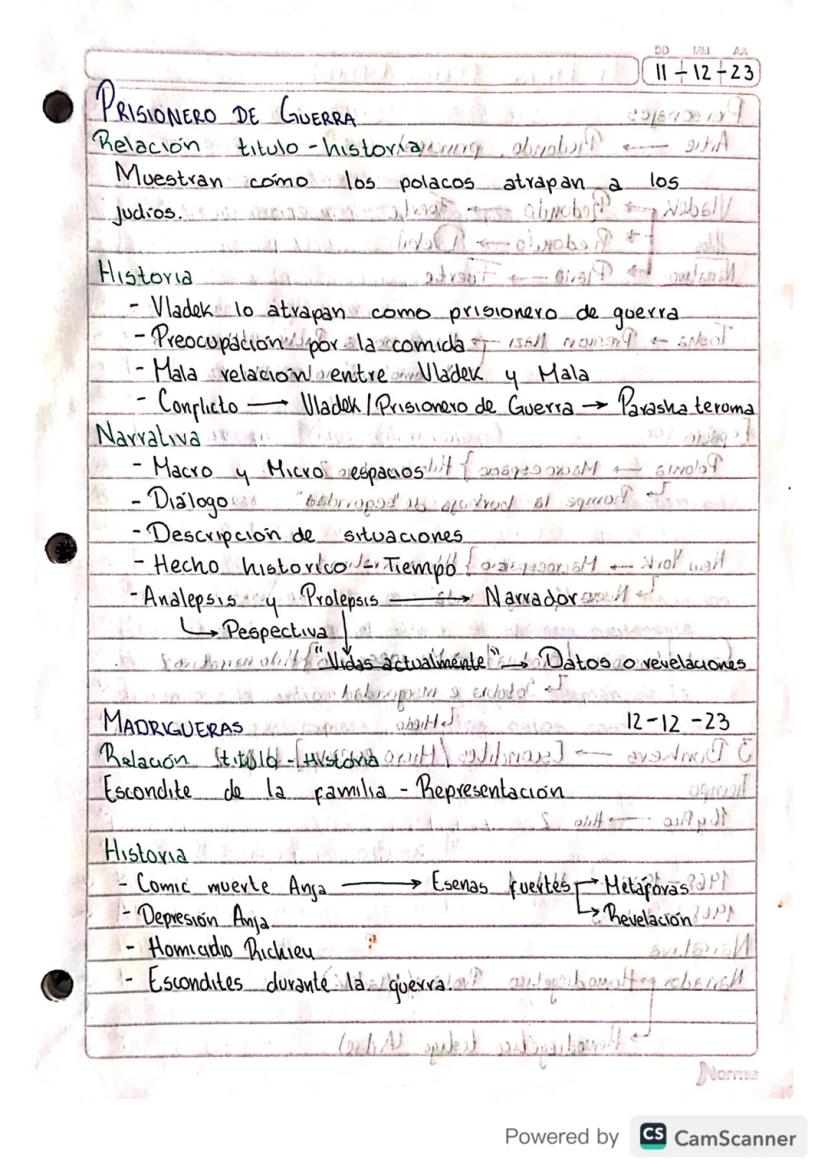 DD MM AA
11-12-23
PRISIONERO DE GUERRA
Relación titulo - historia
Muestran cómo los polacos atrapan a los
judios.
Historia
- Vladek lo atrapan como prisionero de guerra
- Preocupación por la comida
- Mala relacion entre Vladek y Mala
- Conflicto → Vladek / Prisionero de Guerra → Parasha teroma
Narrativa
- Macro y Micro espacios
- Diálogo
- Descripción de situaciones
- Hecho historico - Tiempo
- Analepsis y Prolepsis → Narrador
↳ Pespectiva
"Vidas actualmente" → Datos o revelaciones
MADRIGUERAS 12-12-23
Relación titulo - Historia
Escondite de la familia - Representación
Historia
- Comic muerte Anja → Esenas fuertes → Metáforas
→ Revelación
- Depresión Anja
- Homicidio Richieu
- Escondites durante la guerra.
Norma
Powered by CS CamScanner